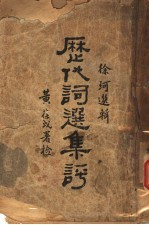 徐珂選輯
歷代詞選集評
署檢